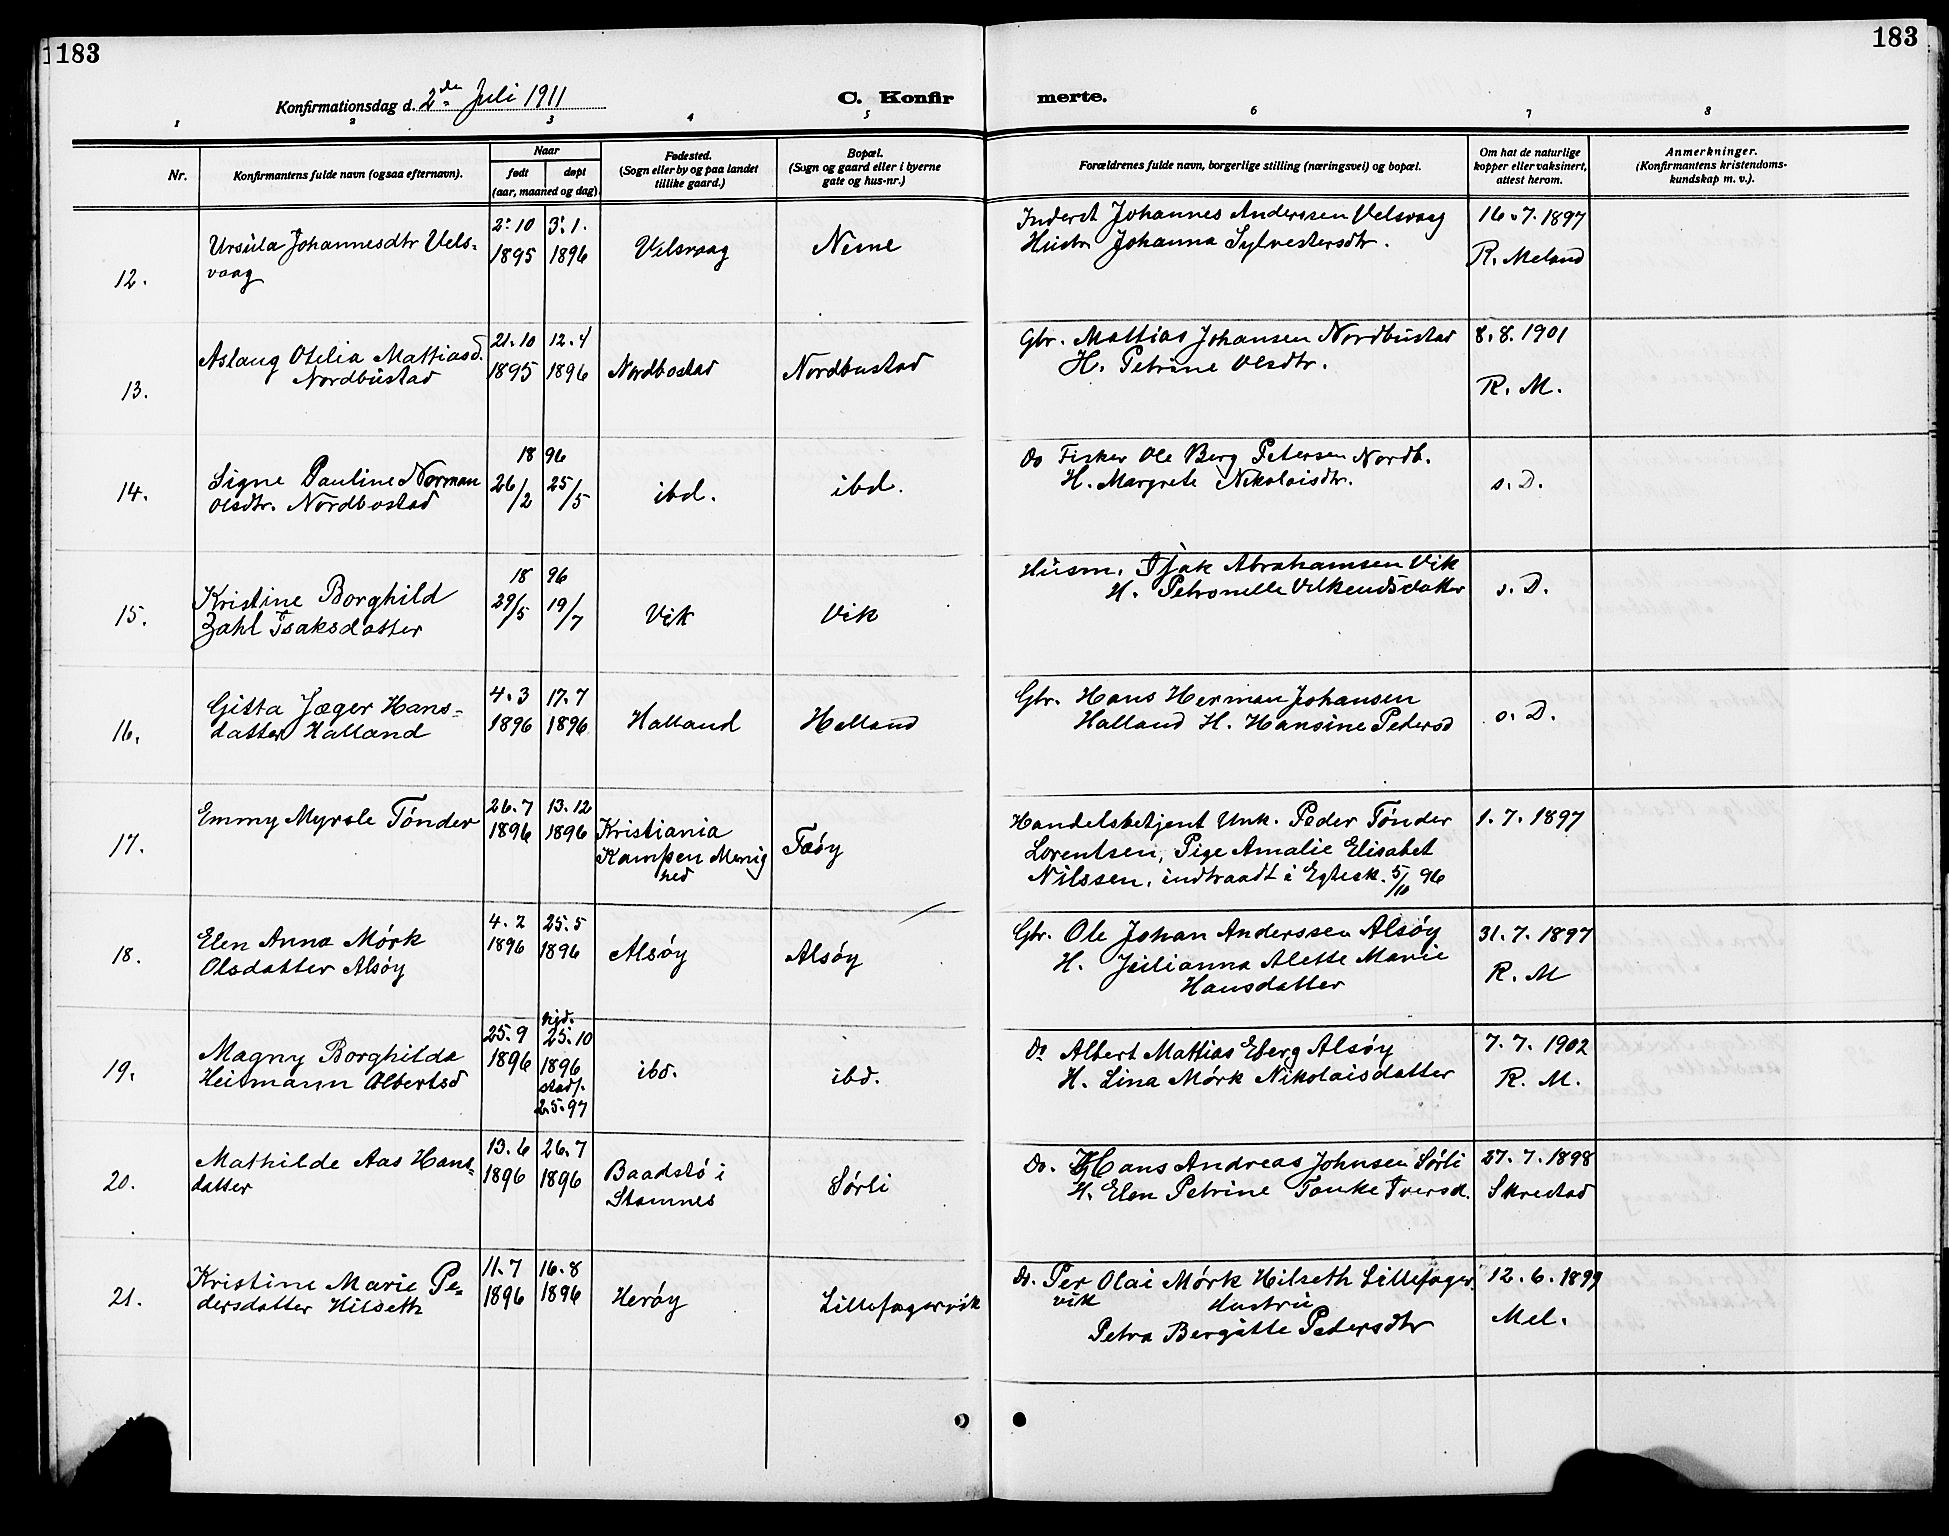 183
183
Konfirmationsdag d. 2den Juli 1911
C. Konfir
merte.
1 2 3 4 5 6 7 8
Nr.
Konfirmantens fulde navn (ogsaa efternavn).
Naar
født
døpt
(aar, maaned og dag).
Fødested.
(Sogn eller by og paa landet
tillike gaard.)
Bopæl.
(Sogn og gaard eller i byerne
gate og hus-nr.)
Forældrenes fulde navn, borgerlige stilling (næringsvei) og bopæl.
Om hat de naturlige
kopper eller vaksinert,
attest herom.
Anmerkninger.
(Konfirmantens kristendoms-
kundskap m. v.).
12.
Ursula Johannesdtr Vels-
vaag
2.10
1895
3.1.
1896
Velsvaag
Nesne
Inderst Johannes Anderssen Velsvaag
Hustr. Johanna Sylvestersdtr.
16.7.1897
R. Meland
13.
Aslaug Otelia Mattiasd.
Nordbustad
21.10
1895
12.4
1896
Nordbostad
Nordbustad
Gbr. Mattias Johansen Nordbustad
H. Petrine Olsdtr.
8.8.1901
R. M.
14.
Signe Pauline Norman
Olsdtr. Nordbostad
18 96
26/2
25/5
ibd.
ibd.
Do Fisker Ole Berg Petersen Nordb.
H. Margrete Nikolaisdtr.
s. D.
15.
Kristine Borghild
Zahl Isaksdatter
18 96
29/5
19/7
Vik
Vik
Husm. Isak Abrahamsen Vik
H. Petronelle Vilkensdatter
s. D.
16.
Gitta Jæger Hans-
datter Halland
4.3
1896
17.7
1896
Halland
Halland
Gbr. Hans Herman Johansen
Halland H. Hansine Pedersd
s. D.
17.
Emmy Myrsle Tønder
26.7
1896
13.12
1896
Kristiania
Kampen Menig
hed
Færøy
Handelsbetjent Unk. Peder Tønder
Lorentsen, Pige Amalie Elisabet
Nilssen, indtraadt i Egtesk. 5/10 96
1.7.1897
18.
Elen Anna Mørk
Olsdatter Alsøy
4.2
1896
25.5
1896
Alsøy
Alsøy
Gbr. Ole Johan Anderssen Alsøy
H. Julianna Alette Marie
Hansdatter
31.7.1897
R. M
19.
Magny Borghilda
Heitmann Albertsd
25.9
1896
hjd.
25.10
1896
stadf.
2.5.97
ibd.
ibd.
Do Albert Mattias Eberg Alsøy
H. Lina Mørk Nikolaisdatter
7.7.1902
R. M.
20.
Mathilde Aas Hans-
datter
13.6
1896
26.7
1896
Baadstø i
Stamnes
Sørli
Do. Hans Andreas Johnsen Sørli
H. Elen Petrine Tanke Iversd.
27.7.1898
Skrestad
21.
Kristine Marie Pe-
dersdatter Hilseth
11.7
1896
16.8
1896
Herøy
Lillefagervik
Do. Per Olai Mørk Hilseth Lillefager
vik Hustru
Petra Bergitte Pedersdtr
12.6.1899
Mel.